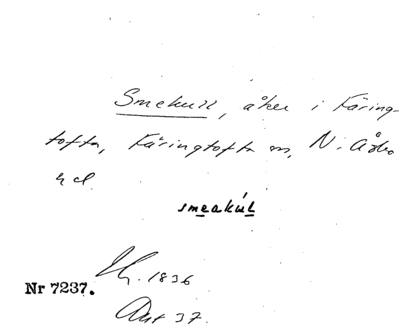 Smekull, åker i Färing-
tofta, Färingtofta sn, N. Åsbo
hd.
smeakúl
1836
Nr 7237.
Akt 37.